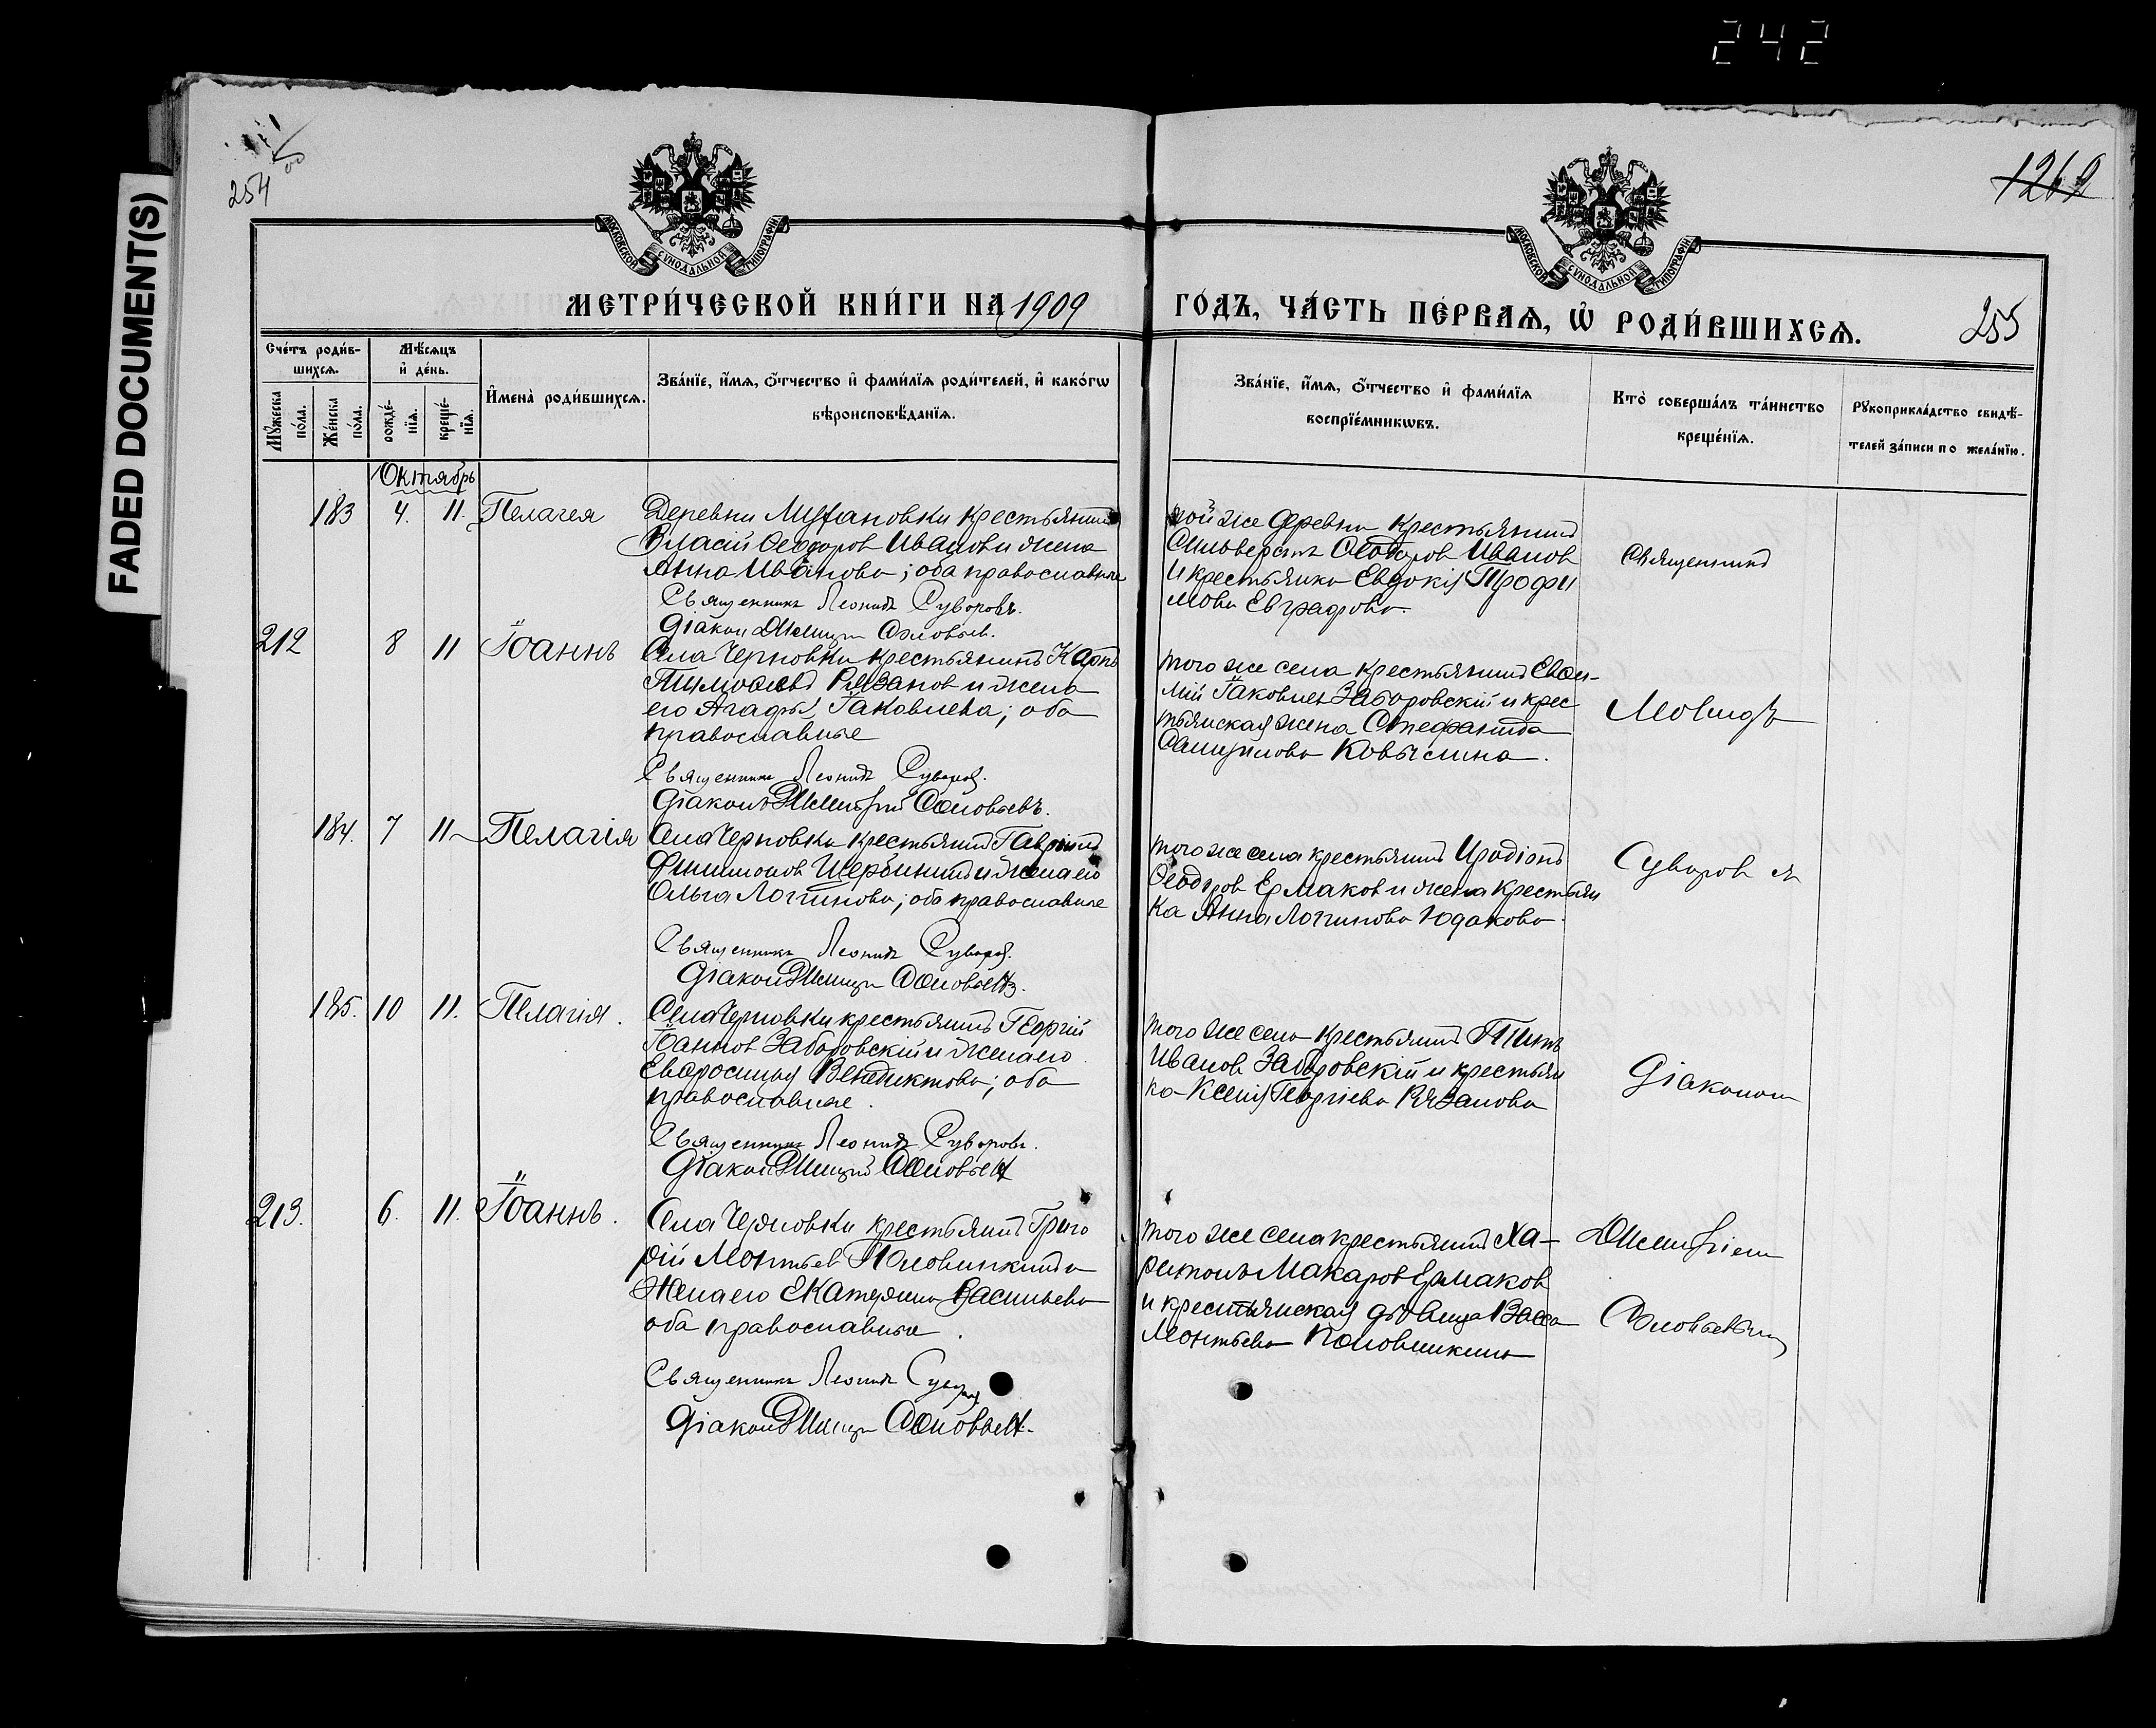 242
FADED DOCUMENT(S)
254
1269
МОСКОВСКОЙ СѴНОДАЛЬНОЙ ТИПОГРАФІИ
МОСКОВСКОЙ СѴНОДАЛЬНОЙ ТИПОГРАФІИ
МЕТРИ́ЧЕСКОЙ КНИ́ГИ НА 1909
ГО́ДЪ, ЧА́СТЬ ПЕ́РВАѦ, Ѡ҆ РОДИ́ВШИХСѦ.
255
Сче́тъ роди́в-
шихсѧ.
Мѣ́сѧцъ
и҆ де́нь.
Мꙋ́жеска
по́ла.
Же́нска
по́ла.
рожде́-
нїѧ.
креще́-
нїѧ.
И҆мена̀ роди́вшихсѧ.
Зва́нїе, и҆́мѧ, ѻ҆́тчество и҆ фами́лїѧ роди́телей, и҆ како́гѡ
вѣроисповѣ́данїѧ.
Зва́нїе, и҆́мѧ, ѻ҆́тчество и҆ фами́лїѧ
воспрїе́мникѡвъ.
Кто̀ соверша́лъ та́инство
креще́нїѧ.
Рꙋкоприкла́дство свидѣ́-
телей за́писи по жела́нїю.
Октябрь
183 4. 11. Пелагея
Деревни крестьянинъ
Власій Ѳеодоров Иванов и жена
Анна Иванова; оба православные
Священникъ Леонидъ Суворовъ.
Діакон Димитрій Соловьев.
той же деревни крестьянинъ
Сильверстъ Ѳеодоров Иванов
и крестьянка Евдокія Трофи
мова Евграфова.
Священникъ
212 8 11 Іоаннъ
Села Черновки крестьянинъ Карпъ
Тимоѳеевъ Рязанов и жена
его Агафья Іаковлева; оба
православные
Священникъ Леонидъ Суворов.
Діаконъ Димитрій Соловьевъ.
того же села крестьянинъ Евѳи-
мій Іаковлев Заборовскій и крес
тьянская жена Стефанида
Самуилова Ковылина.
Леонидъ
184. 7 11 Пелагія
Села Черновки крестьянинъ Гавріилъ
Филимонов Щербининъ и жена его
Ольга Логгинова; оба православные
Священникъ Леонидъ Суворов.
Діакон Димитрій Соловьевъ.
того же села крестьянинъ Иродіонъ
Ѳеодоров Ермаков и жена крестьян
ка Анна Логгинова Юдакова.
Суворов и
185. 10 11. Пелагія.
Села Черновки крестьянинъ Георгій
Іоаннов Заборовскій и жена его
Евфросинія Венедиктова; оба
православные.
Священникъ Леонидъ Суворовъ.
Діакон Димитрій Соловьев
того же села крестьянинъ Титъ
Иванов Заборовскій и крестьян
ка Ксенія Георгіева Рязанова
Діаконом
213. 6. 11. Іоаннъ.
Села Черновки крестьянинъ Григо
рій Леонтьев Половинкинъ и
жена его Екатерина Васильева
оба православные.
Священникъ Леонидъ Суворов
Діакон Димитрій Соловьев.
того же села крестьянинъ Ха-
ритонъ Макаров Ермаков
и крестьянская дѣвица Васса
Леонтьева Половинкина
Димитріем
Соловьевым